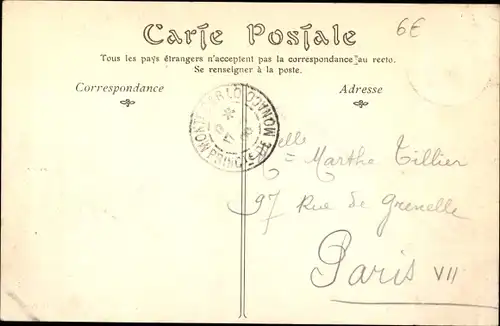 6€
Carte Postale
Tous les pays étrangers n'acceptent pas la correspondance au recto.
Se renseigner à la poste.
Correspondance
Adresse
MONTE CARLO
PRINCTÉ DE MONACO
Melle Marthe Tillier
97 Rue de Grenelle
Paris VII